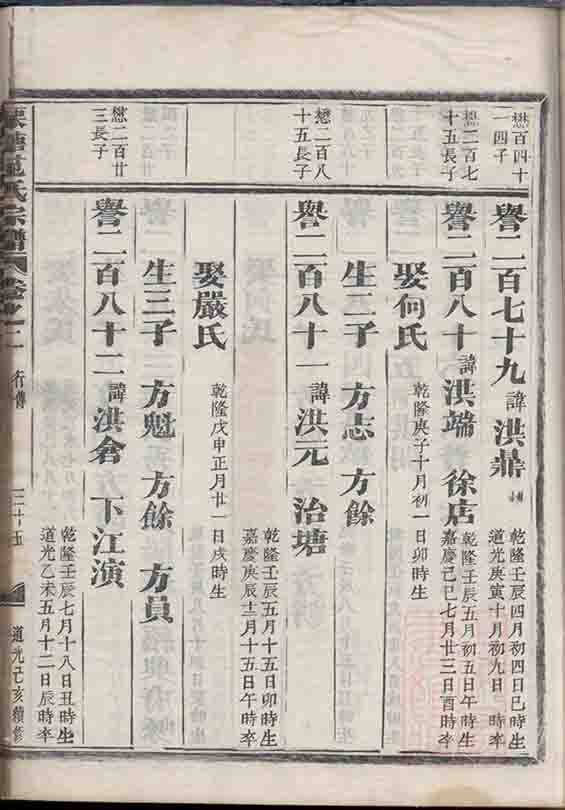 懋百四十
一四子
譽二百七十九 諱 洪鼎
乾隆壬辰四月初四日巳時生
道光庚寅十月初九日 時卒
懋二百七
十五長子
譽二百八十 諱 洪端 徐店
乾隆壬辰五月初五日午時生
嘉慶己巳七月廿三日酉時卒
娶何氏 乾隆庚子十月初一日卯時生
生二子 方志 方餘
懋二百八
十五長子
譽二百八十一 諱 洪元 治塘
乾隆壬辰五月十五日卯時生
嘉慶庚辰十二月十五日午時卒
娶嚴氏 乾隆戊申正月廿一日戌時生
生三子 方魁 方餘 方員
懋二百廿
三長子
譽二百八十二 諱 洪倉 下江演
乾隆壬辰七月十八日丑時生
道光乙未五月十二日辰時卒
范氏宗譜 卷之二 行傳 三十五 道光己亥續修